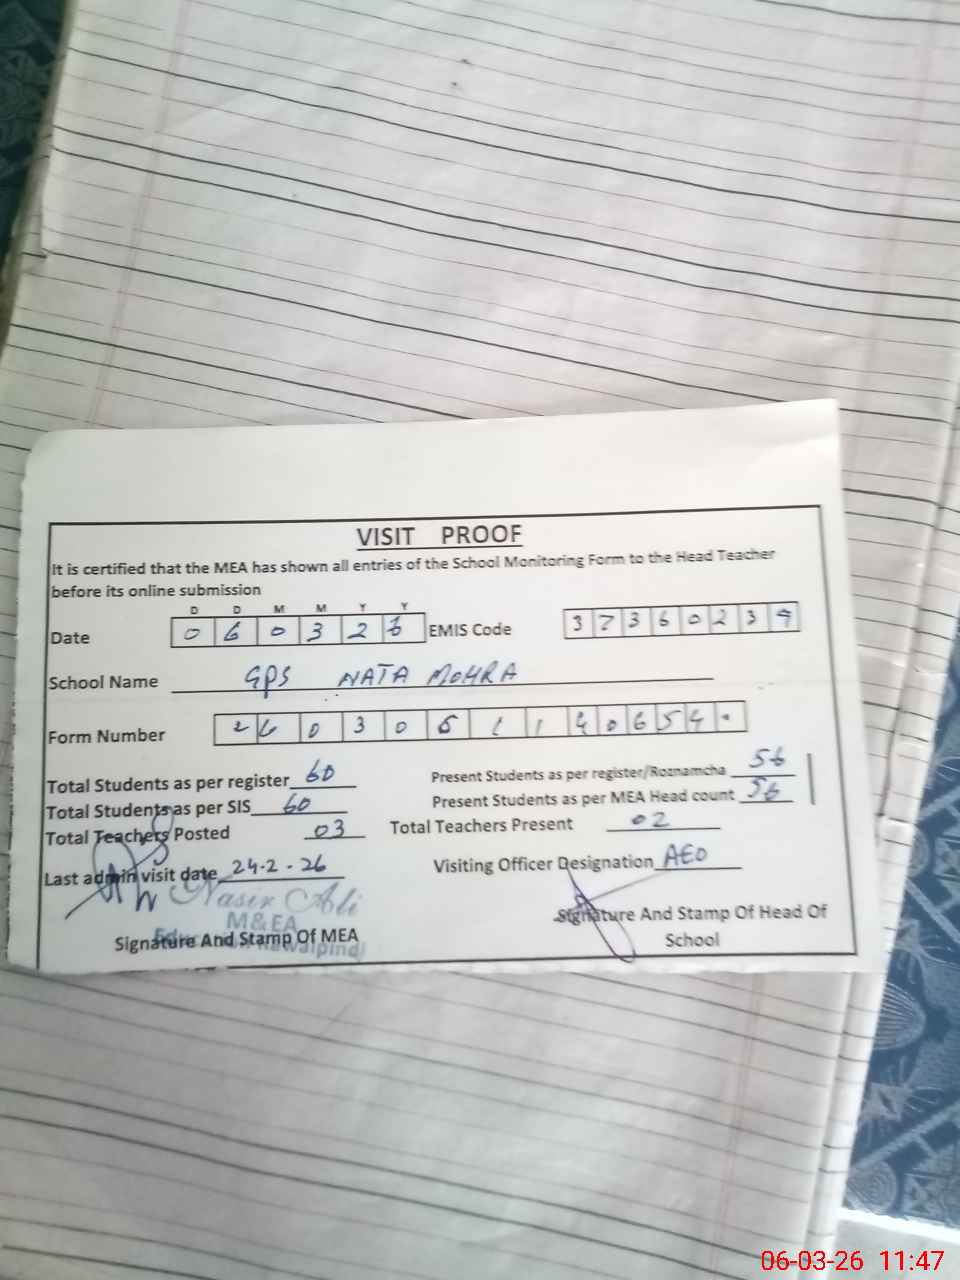 VISIT PROOF
It is certified that the MEA has shown all entries of the School Monitoring Form to the Head Teacher
before its online submission
D D M M Y Y
Date 0 6 0 3 2 6 EMIS Code 3 7 3 6 0 2 3 9
School Name GPS NATA MOHRA
Form Number
Total Students as per register 60 Present Students as per register/Roznamcha 56
Total Students as per SIS 60 Present Students as per MEA Head count 56
Total Teachers Posted 03 Total Teachers Present 02
Last admin visit date 24-2-26 Visiting Officer Designation AEO
Nasir Ali
M&EA
Signature And Stamp Of MEA Signature And Stamp Of Head Of
School
06-03-26 11:47